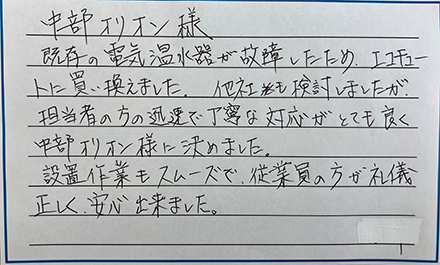 中部オリオン様
既存の電気温水器が故障したため、エコキュー
トに買い換えました。他社も検討しましたが、
担当者の方の迅速で丁寧な対応がとても良く
中部オリオン様に決めました。
設置作業もスムーズで、従業員の方が礼儀
正しく、安心出来ました。